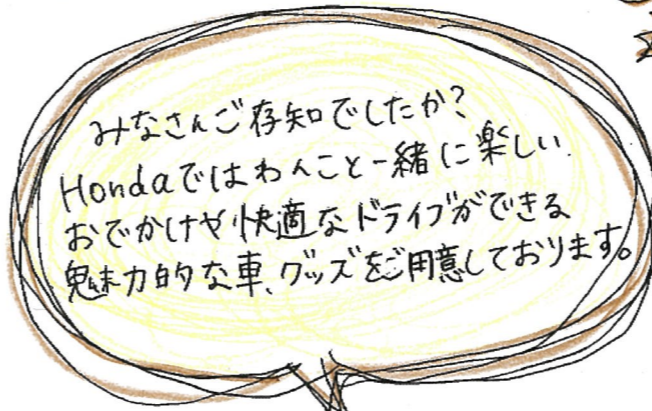 みなさんご存知でしたか?
Hondaではわんこと一緒に楽しい
おでかけや快適なドライブができる
魅力的な車、グッズをご用意しております。